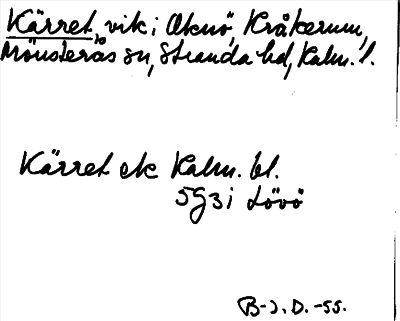 Kärret, vik i Oknö, Kråkerum,
Mönsterås sn, Stranda hd, Kalm. l.
Kärret ek Kalm. bl.
5G3i Lövö
B-J.D.-55.